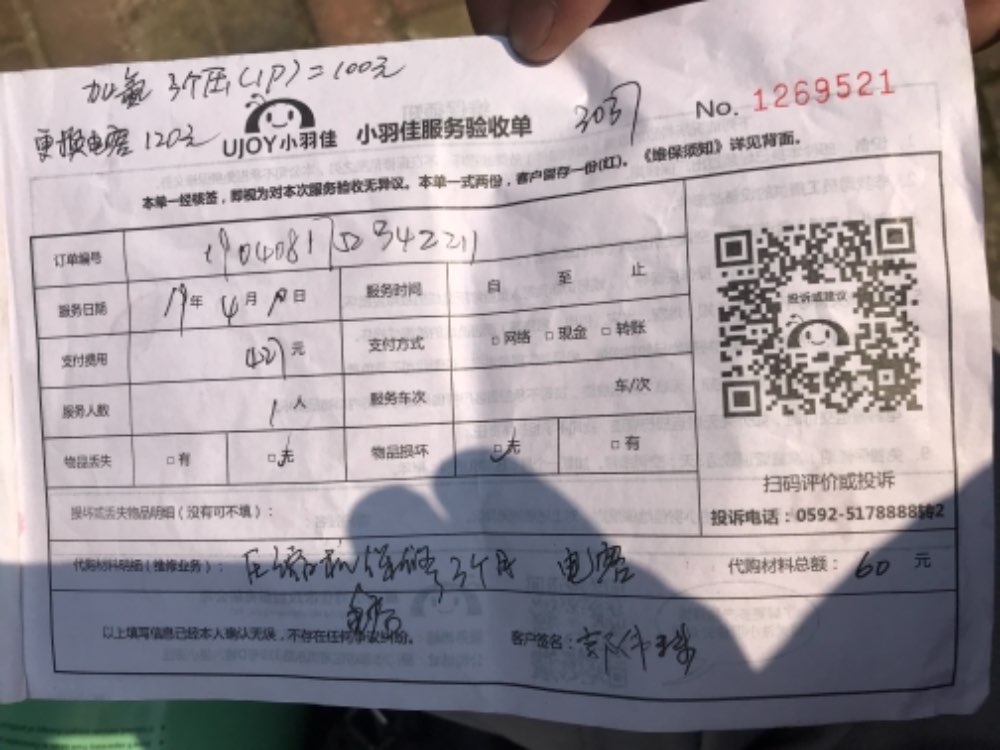 加氟 3个压(1P)=100元
更换电容 120元
UJOY小羽佳 小羽佳服务验收单
No. 1269521
本单一经核签，即视为对本次服务验收无异议。本单一式两份，客户留存一份(红)。《维保须知》详见背面。
订单编号
服务日期 19年 4月 日 服务时间 自 至 止
支付费用 元 支付方式 □网络 □现金 □转账
服务人数 1人 服务车次 车/次
物品丢失 □有 □无 物品损坏 □无 □有
投诉或建议
扫码评价或投诉
投诉电话：0592-5178888转2
损坏或丢失物品明细（没有可不填）：
代购材料明细（维修业务）： 保修3个月 电容 代购材料总额：60 元
以上填写信息已经本人确认无误，不存在任何争议纠纷。 客户签名：